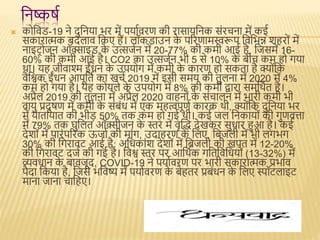 निष्कर्ष
कोविड-19 ने दुनिया भर में पर्यावरण की रासायनिक संरचना में कई
सकारात्मक बदलाव किए हैं। लॉकडाउन के परिणामस्वरूप विभिन्न शहरों में
नाइट्रोजन ऑक्साइड के उत्सर्जन में 20-77% की कमी आई है, जिसमें 16-
60% की कमी आई है। CO2 का उत्सर्जन भी 5 से 10% के बीच कम हो गया
था। यह जीवाश्म ईंधन के उपयोग में कमी के कारण हो सकता है क्योंकि
वैश्विक ईंधन आपूर्ति का खर्च 2019 में इसी समय की तुलना में 2020 में 4%
कम हो गया है। यह कोयले के उपयोग में 8% की कमी द्वारा समर्थित है।
अप्रैल 2019 की तुलना में अप्रैल 2020 वाहनों के संचालन में भारी कमी भी
वायु प्रदूषण में कमी के संबंध में एक महत्वपूर्ण कारक थी, क्योंकि दुनिया भर
में यातायात की भीड़ 50% तक कम हो गई थी। कई जल निकायों की गुणवत्ता
में 79% तक घुलित ऑक्सीजन के स्तर में वृद्धि देखकर सुधार हुआ है। कई
देशों में पारंपरिक ऊर्जा की मांग, उदाहरण के लिए, बिजली में भी लगभग
30% की गिरावट आई है; अधिकांश देशों में बिजली की खपत में 12-20%
की गिरावट दर्ज की गई है। विश्व स्तर पर आर्थिक गतिविधियों (13-32%) में
व्यवधान के बावजूद, COVID-19 ने पर्यावरण पर भारी सकारात्मक प्रभाव
पैदा किया है, जिसे भविष्य में पर्यावरण के बेहतर प्रबंधन के लिए स्पॉटलाइट
माना जाना चाहिए।
धन्यवाद